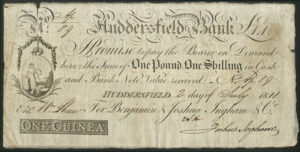 No. Huddersfield Bank £1.1
I Promise to pay the Bearer on Demand
here the Sum of One Pound, One Shilling in Cash
and Bank Note Value received
HUDDERSFIELD 2 day of July 1811
Entd. For Benjamin & Joshua Ingham & Co.
ONE GUINEA
Joshua Ingham